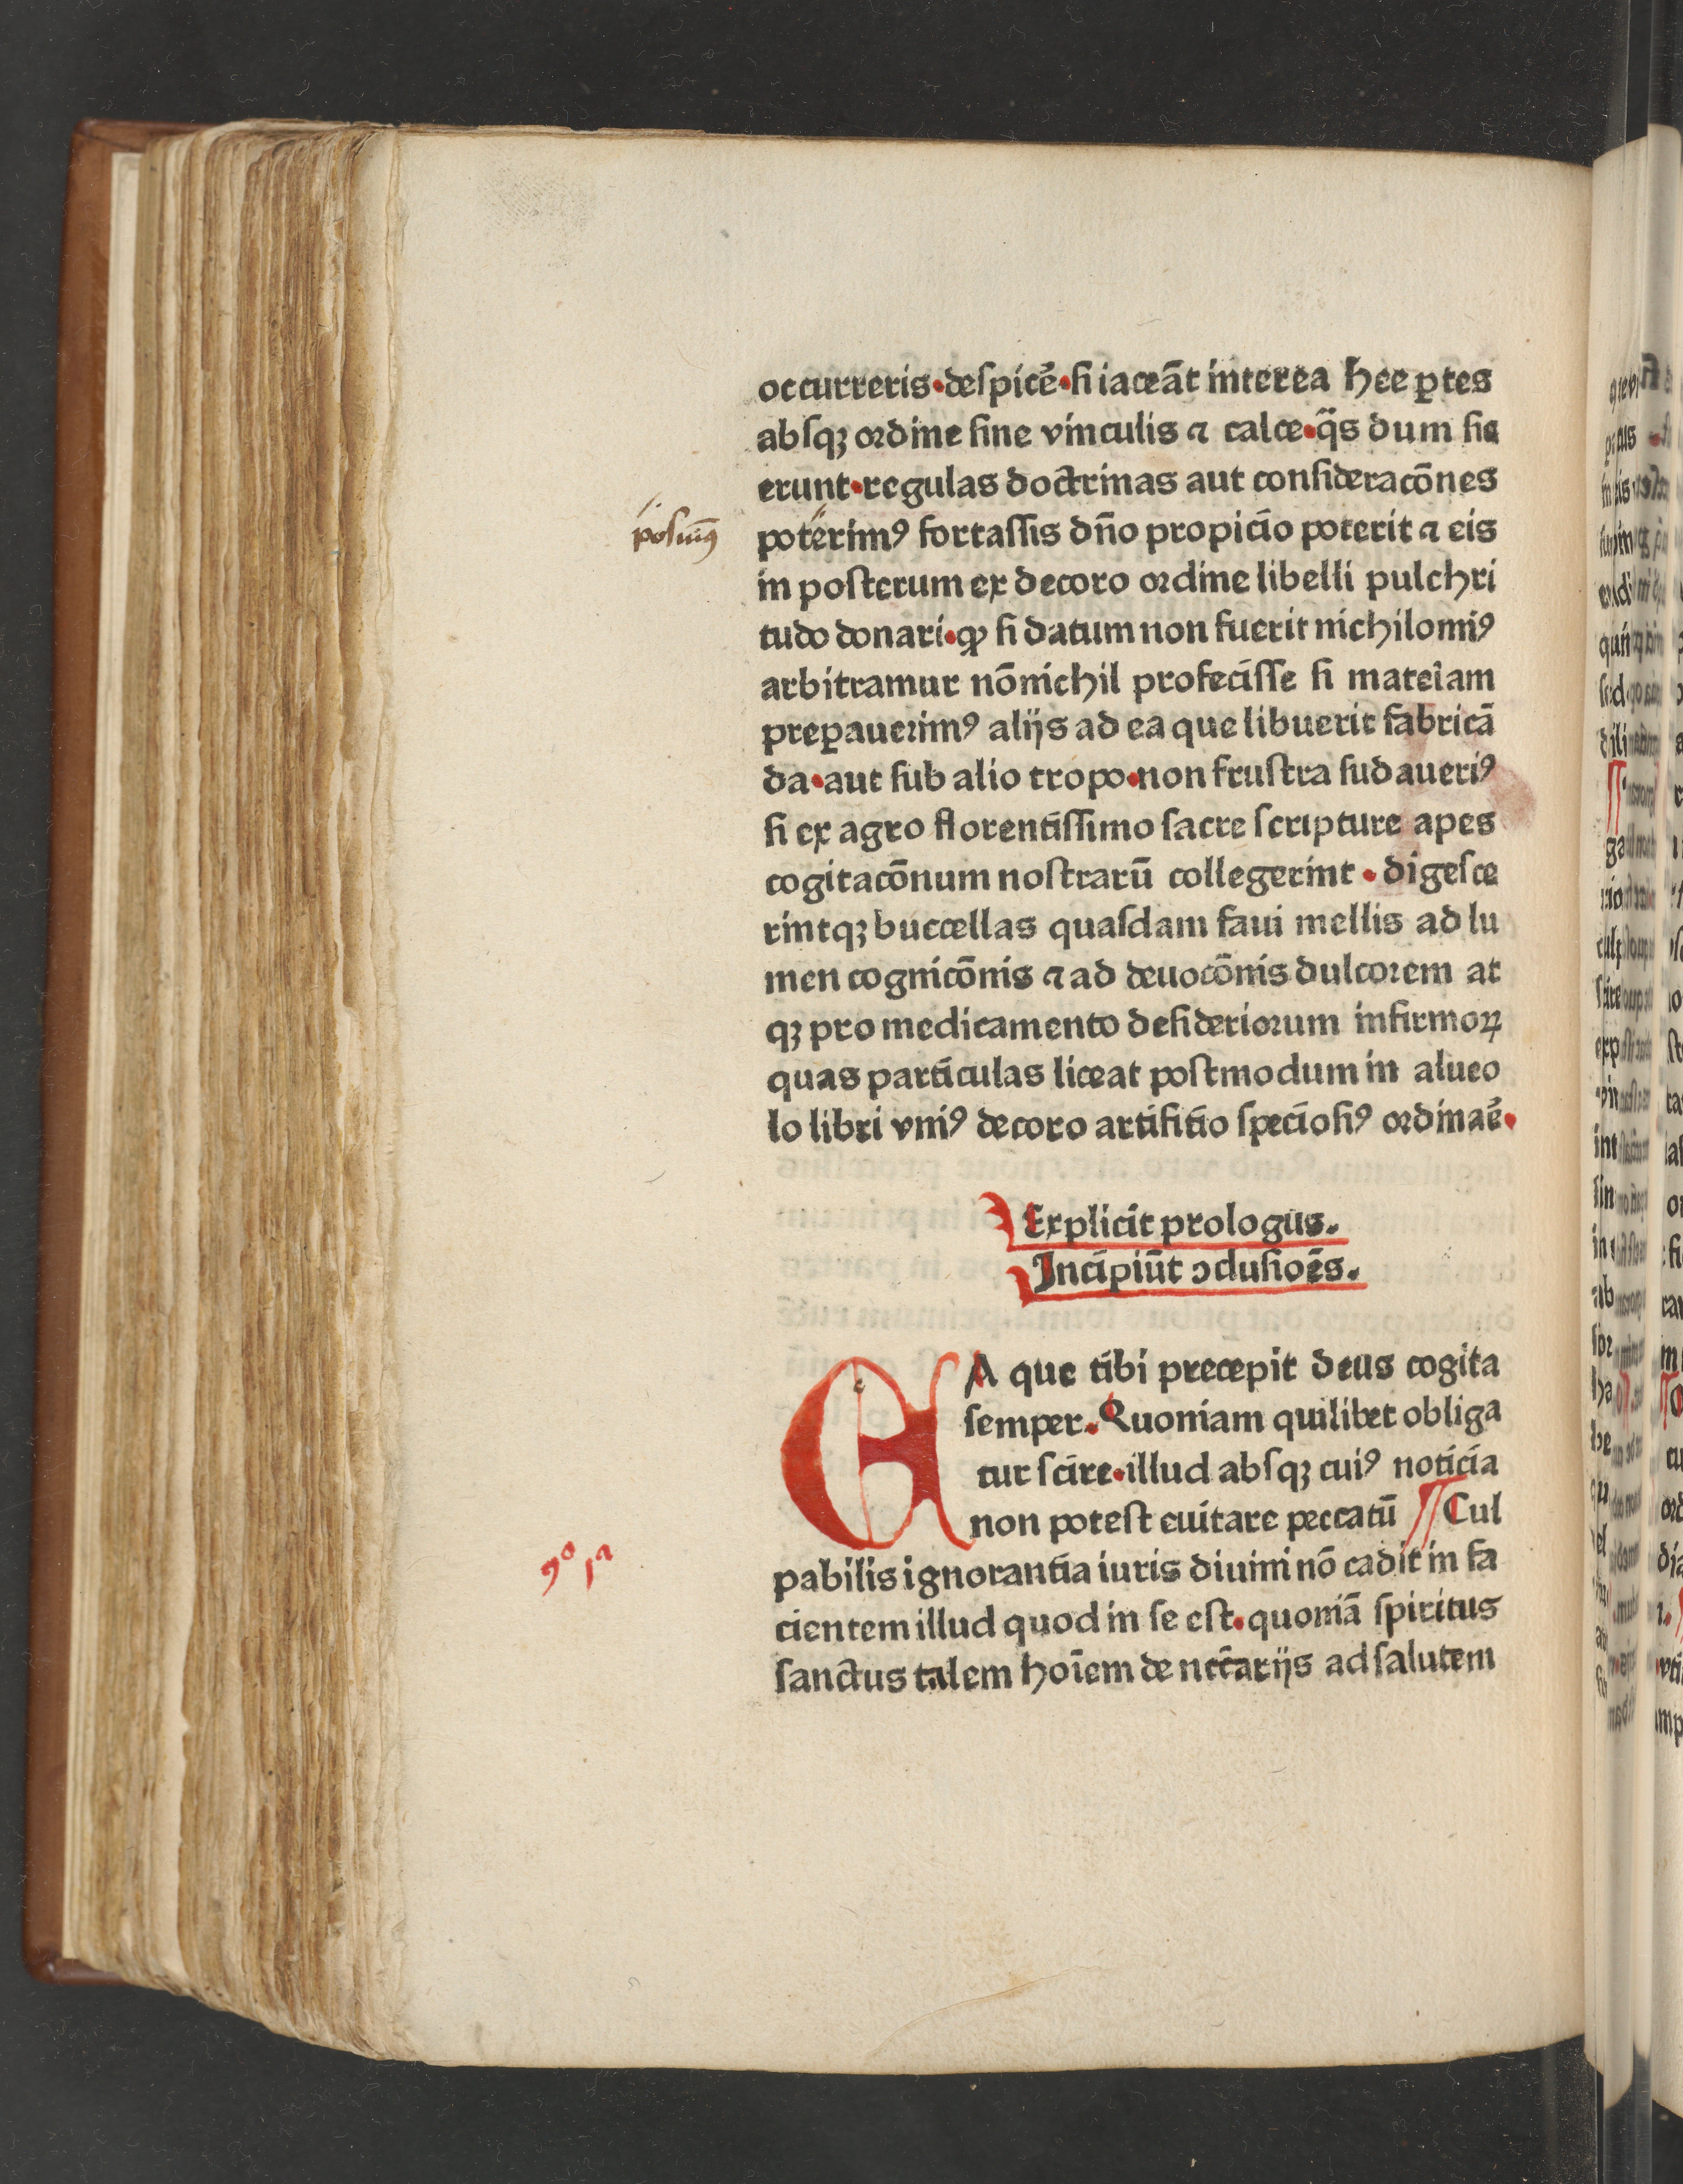 occurreris•deſpicẽ•ſi iaceãt interea hec ꝑtes
abſqꝫ ordine ſine vinculis ⁊ calce•q̃s dum ſia
erunt•regulas doctrinas aut conſideracõnes
poſuimꝰ
poterimꝰ fortaſſis dño propicio poterit ⁊ eis
in poſterum ex decoro ordine libelli pulchri
tudo donari•ꝙ ſi datum non fuerit nichilomiꝰ
arbitramur nõnichil profeciſſe ſi mateiam
preꝑauerimꝰ alijs ad ea que libuerit fabricã
da•aut ſub alio tropo•non fruſtra ſudaueriꝰ
ſi ex agro florentiſſimo ſacre ſcripture apes
cogitacõnum noſtrarũ collegerint • digeſce
rintqꝫ buccellas quaſdam faui mellis ad lu
men cognicõnis ⁊ ad deuocõnis dulcorem at
qꝫ pro medicamento deſideriorum infirmoꝝ
quas particulas liceat poſtmodum in alueo
lo libri vniꝰ decoro artifitio ſpecioſiꝰ ordinaẽ•
Explicit prologus.
Incipiũt ↄcluſioẽs.
EA que tibi precepit deus cogita
ſemper. Quoniam quilibet obliga
tur ſcire•illud abſqꝫ cuiꝰ noticia
non poteſt euitare peccatũ ¶ Cul
ꝯᵒ 1ᵃ
pabilis ignorantia iuris diuini nõ cadit in fa
cientem illud quod in ſe eſt•quoniã ſpiritus
ſanctus talem hoĩem de nccãrijs ad ſalutem